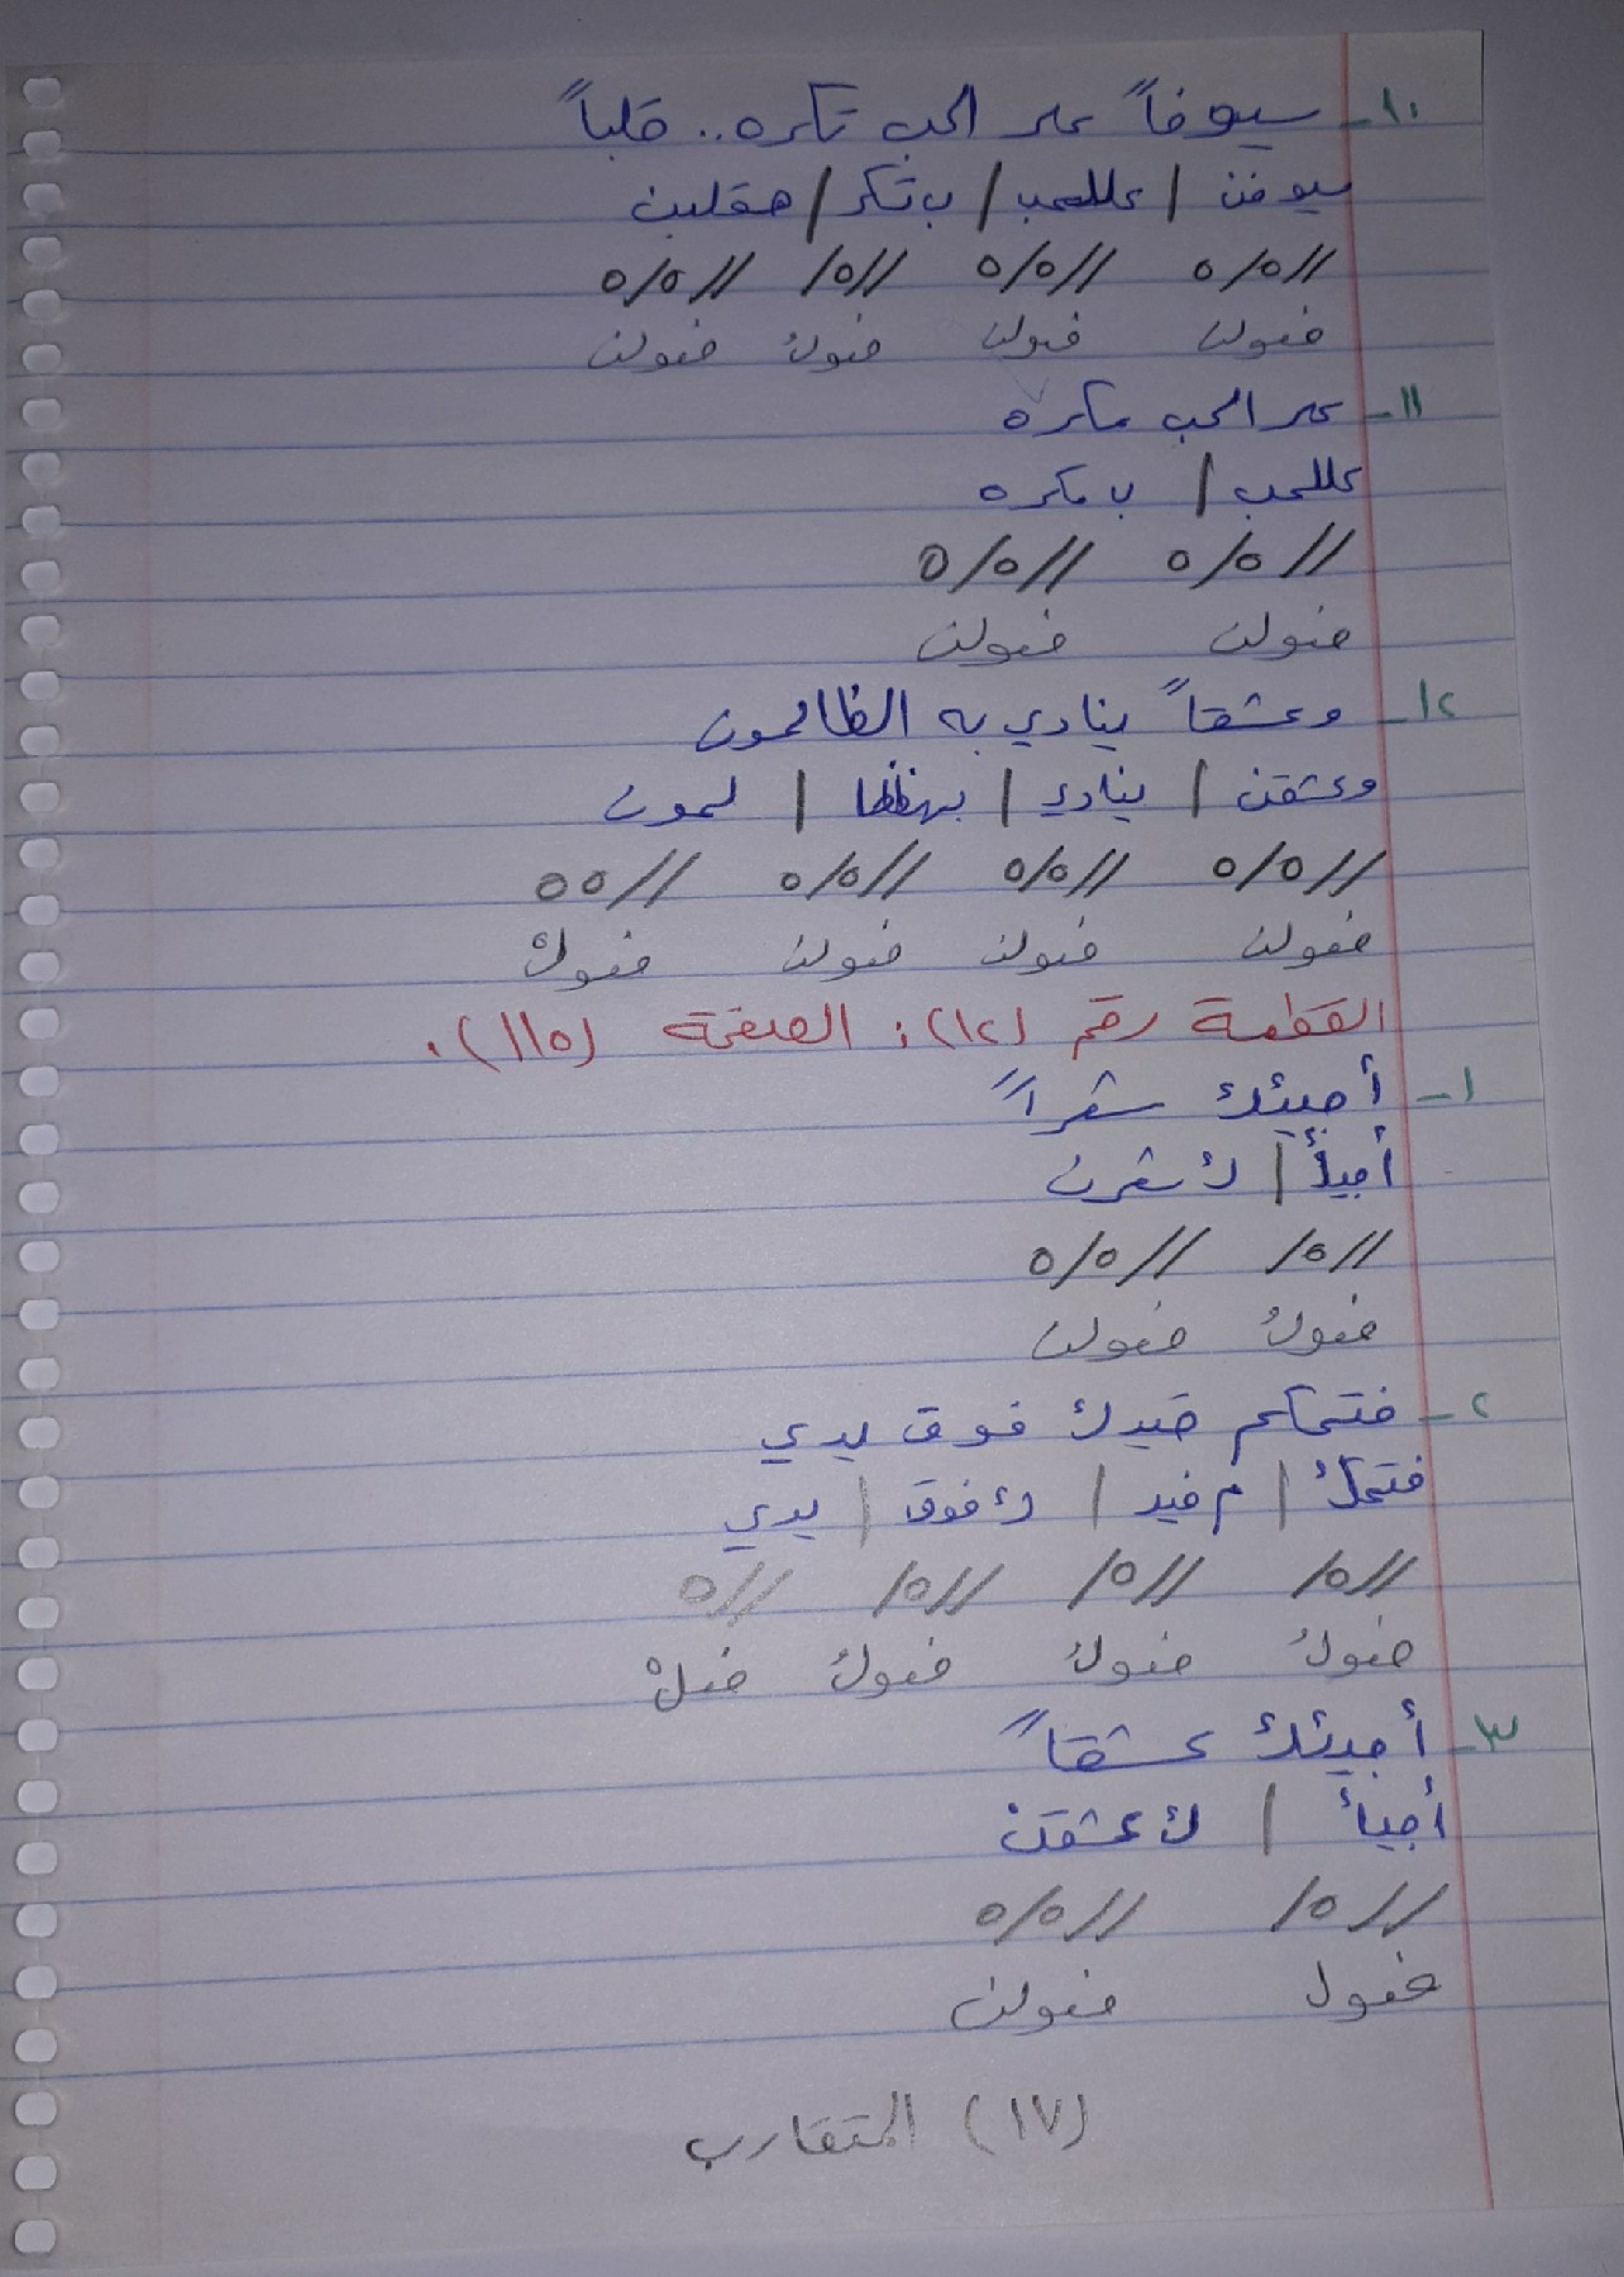 ١٠- سيوفاً على الحب تكره.. قلباً
سيوفن / عللحب / ب تكر / هقلبن
//٥/٥ //٥/٥ //٥/ //٥/٥
فعولن فعولن فعولُ فعولن
١١- على الحب مكره
عللحب / ب مكره
//٥/٥ //٥/٥
فعولن فعولن
١٢- وعشقاً ينادي به الظالمون
وعشقن / ينادي / بهظظا / لمون
//٥/٥ //٥/٥ //٥/٥ //٥٥
فعولن فعولن فعولن فعولْ
القطعة رقم (١٢): الصفحة (١١٥).
١- أجيئك شعراً
أجيأُ / كَ شعرن
//٥/ //٥/٥
فعولُ فعولن
٢- فتحكم قيدك فوق يدي
فتحكُ / م قيد / كَ فوق / يدي
//٥/ //٥/ //٥/ //٥
فعولُ فعولُ فعولُ فعلْ
٣- أجيئكَ عشقاً
أجيأُ / كَ عشقن
//٥/ //٥/٥
فعول فعولن
(١٧) المتقارب